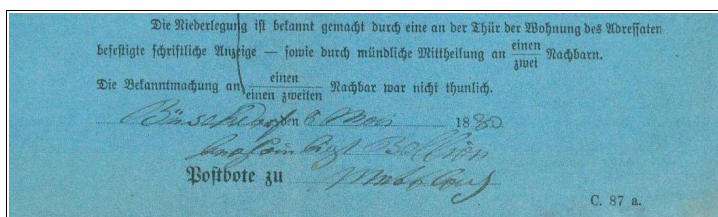 Die Niederlegung ist bekannt gemacht durch eine an der Thür der Wohnung des Adressaten
befestigte schriftliche Anzeige — sowie durch mündliche Mittheilung an einen
zwei Nachbarn.
Die Bekanntmachung an einen
einen zweiten Nachbar war nicht thunlich.
den 8 Mai 1880
Postbote zu
C. 87 a.